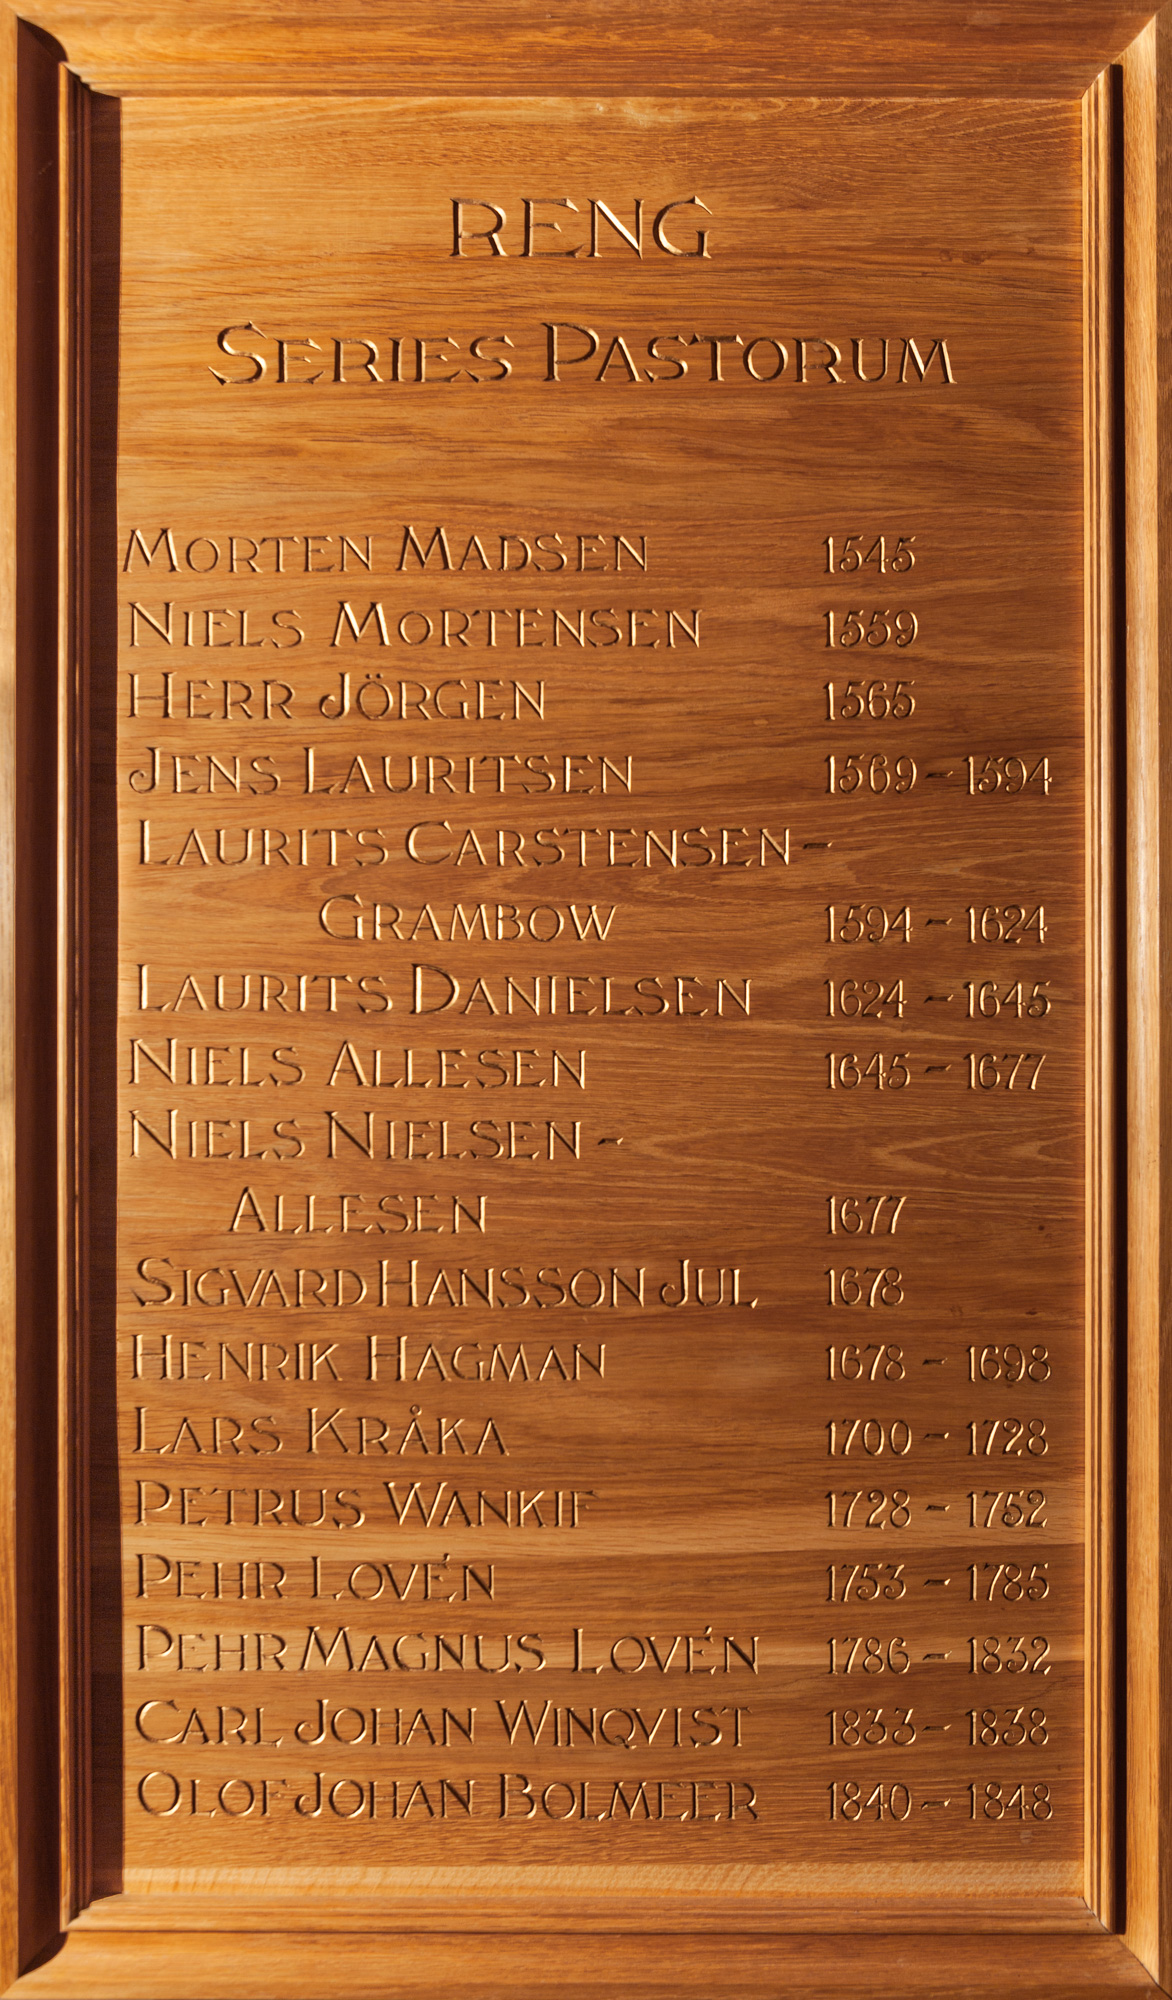 RENG
SERIES PASTORUM
MORTEN MADSEN 1545
NIELS MORTENSEN 1559
HERR JÖRGEN 1565
JENS LAURITSEN 1569 - 1594
LAURITS CARSTENSEN-
GRAMBOW 1594 - 1624
LAURITS DANIELSEN 1624 - 1645
NIELS ALLESEN 1645 - 1677
NIELS NIELSEN -
ALLESEN 1677
SIGVARD HANSSON JUL 1678
HENRIK HAGMAN 1678 - 1698
LARS KRÅKA 1700 - 1728
PETRUS WANKIF 1728 - 1752
PEHR LOVÉN 1753 - 1785
PEHR MAGNUS LOVÉN 1786 - 1832
CARL JOHAN WINQVIST 1833 - 1838
OLOF JOHAN BOLMEER 1840 - 1848